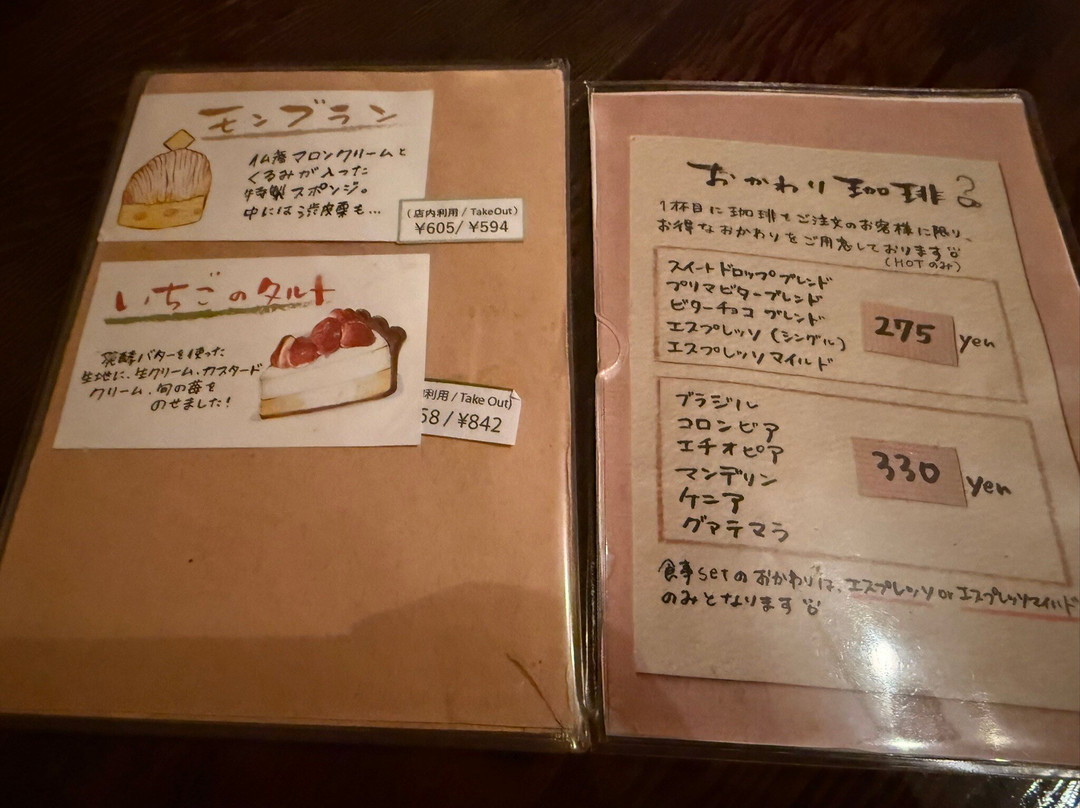 モンブラン
仏産マロンクリームと
くるみが入った
特製スポンジ。
中には渋皮栗も…
(店内利用 / TakeOut)
¥605/ ¥594
いちごのタルト
発酵バターを使った
生地に、生クリーム、カスタード
クリーム、旬の苺を
のせました!
利用 / Take Out)
58 / ¥842
おかわり珈琲
1杯目に珈琲をご注文のお客様に限り、
お得なおかわりをご用意しております
(HOTのみ)
スイートドロップブレンド
プリマビターブレンド
ビターチョコブレンド
エスプレッソ(シングル)
エスプレッソマイルド
275 yen
ブラジル
コロンビア
エチオピア
マンデリン
ケニア
グァテマラ
330 yen
食事setのおかわりは、エスプレッソorエスプレッソマイルド
のみとなります